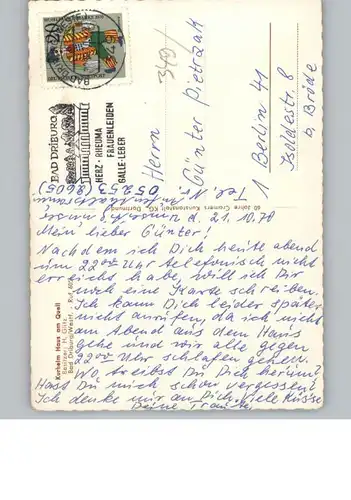 BAD DRIBURG
HERZ-RHEUMA
FRAUENLEIDEN
GALLE-LEBER
20
DEUTSCHE BUNDESPOST
Herrn
Günter Pietrzak
1 Berlin 41
Isoldestr. 8
b, Bröde
60 Jahre Cramers Kunstanstalt KG, Dortmund
Kurheim Haus am Quell
Besitzer: H. Götz
Bad Driburg/Westf.
Tel. Nr. 05253
(8605)
d. 21.10.70
Mein lieber Günter!
Nachdem ich Dich heute abend
um 22⁰⁰ Uhr telefonisch nicht
erreicht habe, will ich Dir
noch eine Karte schreiben.
Ich kann Dich leider später
nicht anrufen, da ich nicht
am Abend aus dem Haus
gehe und wir alle gegen
22⁰⁰ Uhr schlafen gehen.
Wo treibst Du Dich herum?
Hast Du mich schon vergessen?
Ich denke nur an Dich, viele Küsse
Deine Traute